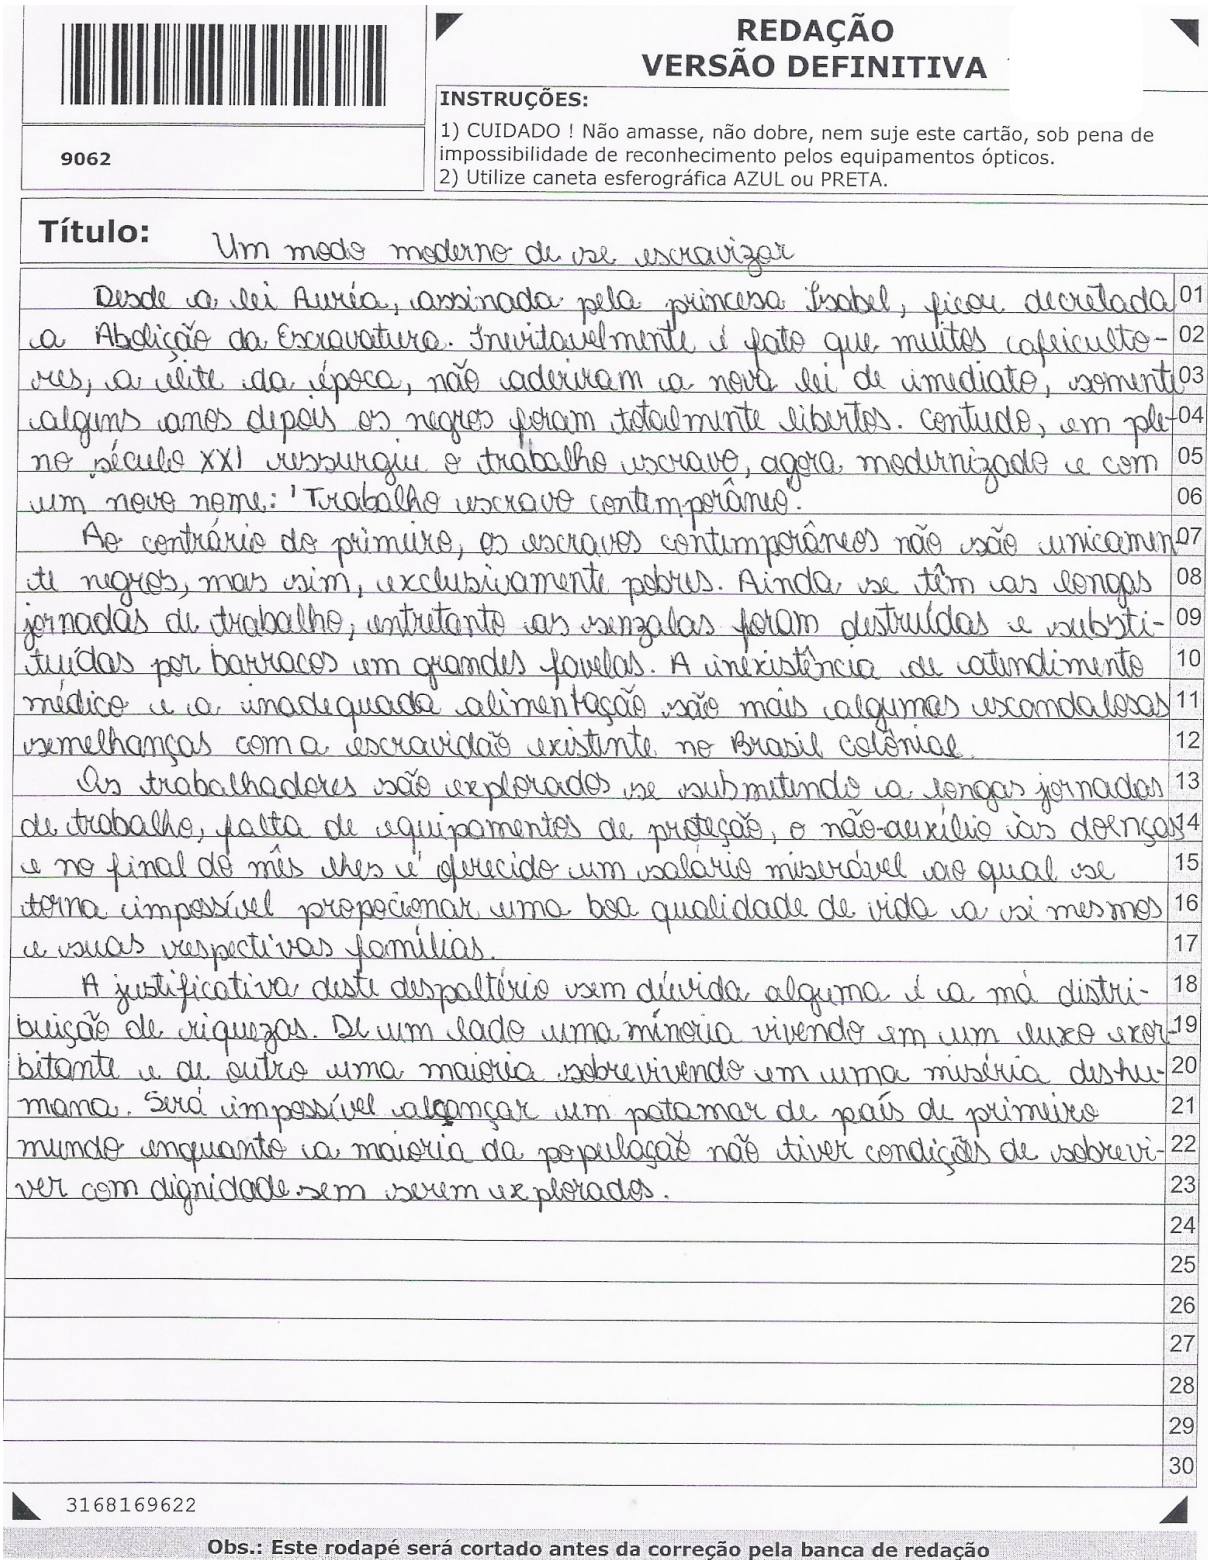 REDAÇÃO
VERSÃO DEFINITIVA
INSTRUÇÕES:
1) CUIDADO ! Não amasse, não dobre, nem suje este cartão, sob pena de
impossibilidade de reconhecimento pelos equipamentos ópticos.
2) Utilize caneta esferográfica AZUL ou PRETA.
9062
Título: Um modo moderno de se escravizar
Desde a lei Auréa, assinada pela princesa Isabel, ficou decretada 01
a Abolição da Escravatura. Inevitavelmente é fato que muitos cafeiculto- 02
res, a elite da época, não aderiram a nova lei de imediato, somente 03
alguns anos depois os negros foram totalmente libertos. Contudo, em ple- 04
no século XXI ressurgiu o trabalho escravo, agora modernizado e com 05
um novo nome: 'Trabalho escravo contemporâneo'. 06
Ao contrário do primeiro, os escravos contemporâneos não são unicamen 07
te negros, mas sim, exclusivamente pobres. Ainda se têm as longas 08
jornadas de trabalho, entretanto as senzalas foram destruídas e substi- 09
tuídas por barracos em grandes favelas. A inexistência de atendimento 10
médico e a inadequada alimentação são mais algumas escandalosas 11
semelhanças com a escravidão existente no Brasil colônial. 12
Os trabalhadores são explorados se submetendo a longas jornadas 13
de trabalho, falta de equipamentos de proteção, o não-auxílio às doenças 14
e no final do mês lhes é oferecido um salário miserável ao qual se 15
torna impossível propocionar uma boa qualidade de vida a si mesmos 16
e suas respectivas famílias. 17
A justificativa deste despaltério sem dúvida alguma é a má distri- 18
buição de riquezas. De um lado uma minoria vivendo em um luxo exor- 19
bitante e de outro uma maioria sobrevivendo em uma miséria deshu- 20
mana. Será impossível alçançar um patamar de país de primeiro 21
mundo enquanto a maioria da população não tiver condições de sobrevi- 22
ver com dignidade sem serem explorados. 23
24
25
26
27
28
29
30
3168169622
Obs.: Este rodapé será cortado antes da correção pela banca de redação